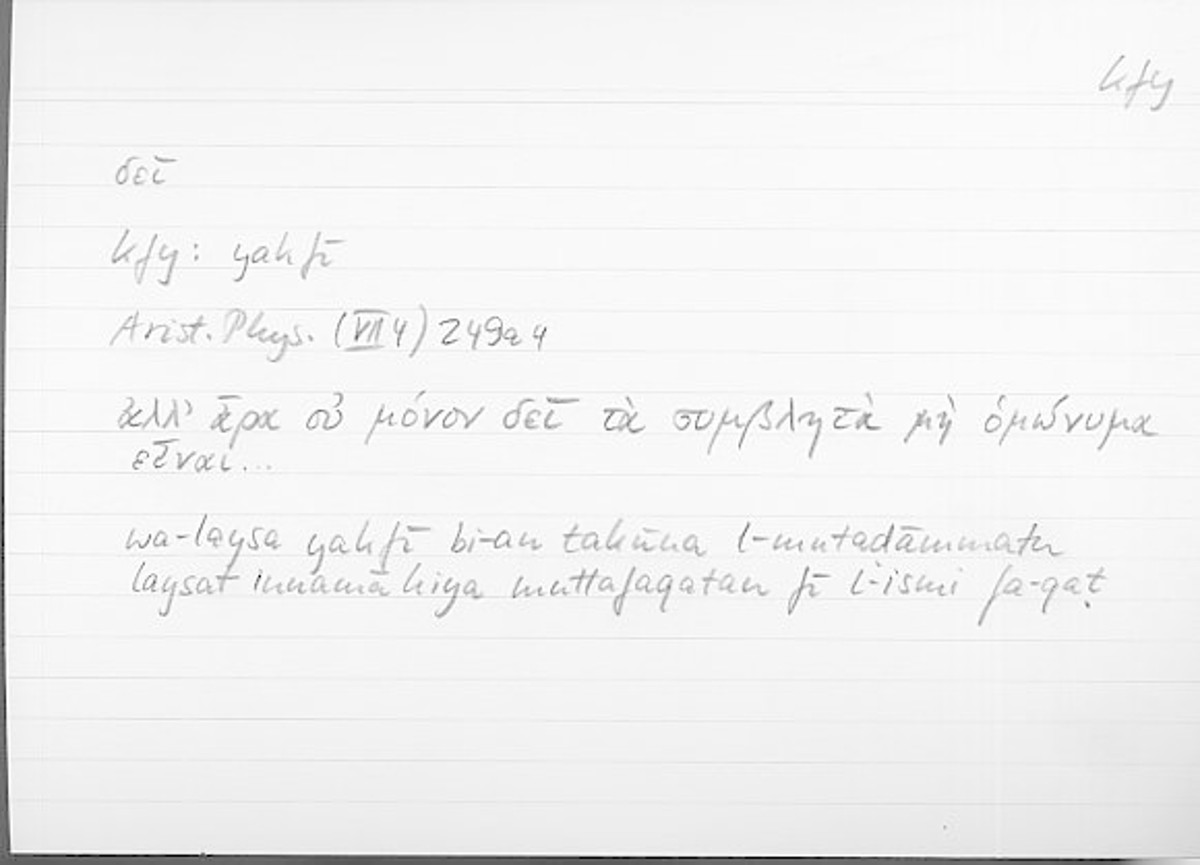 kfy
δεῖ
kfy: yakfī
Arist. Phys. (VII 4) 249a4
ἀλλ' ἆρα οὐ μόνον δεῖ τὰ συμβλητὰ μὴ ὁμώνυμα
εἶναι...
wa-laysa yakfī bi-an takūna l-mutaḍāmmatu
laysat innamā hiya muttafaqatan fī l-ismi fa-qaṭ